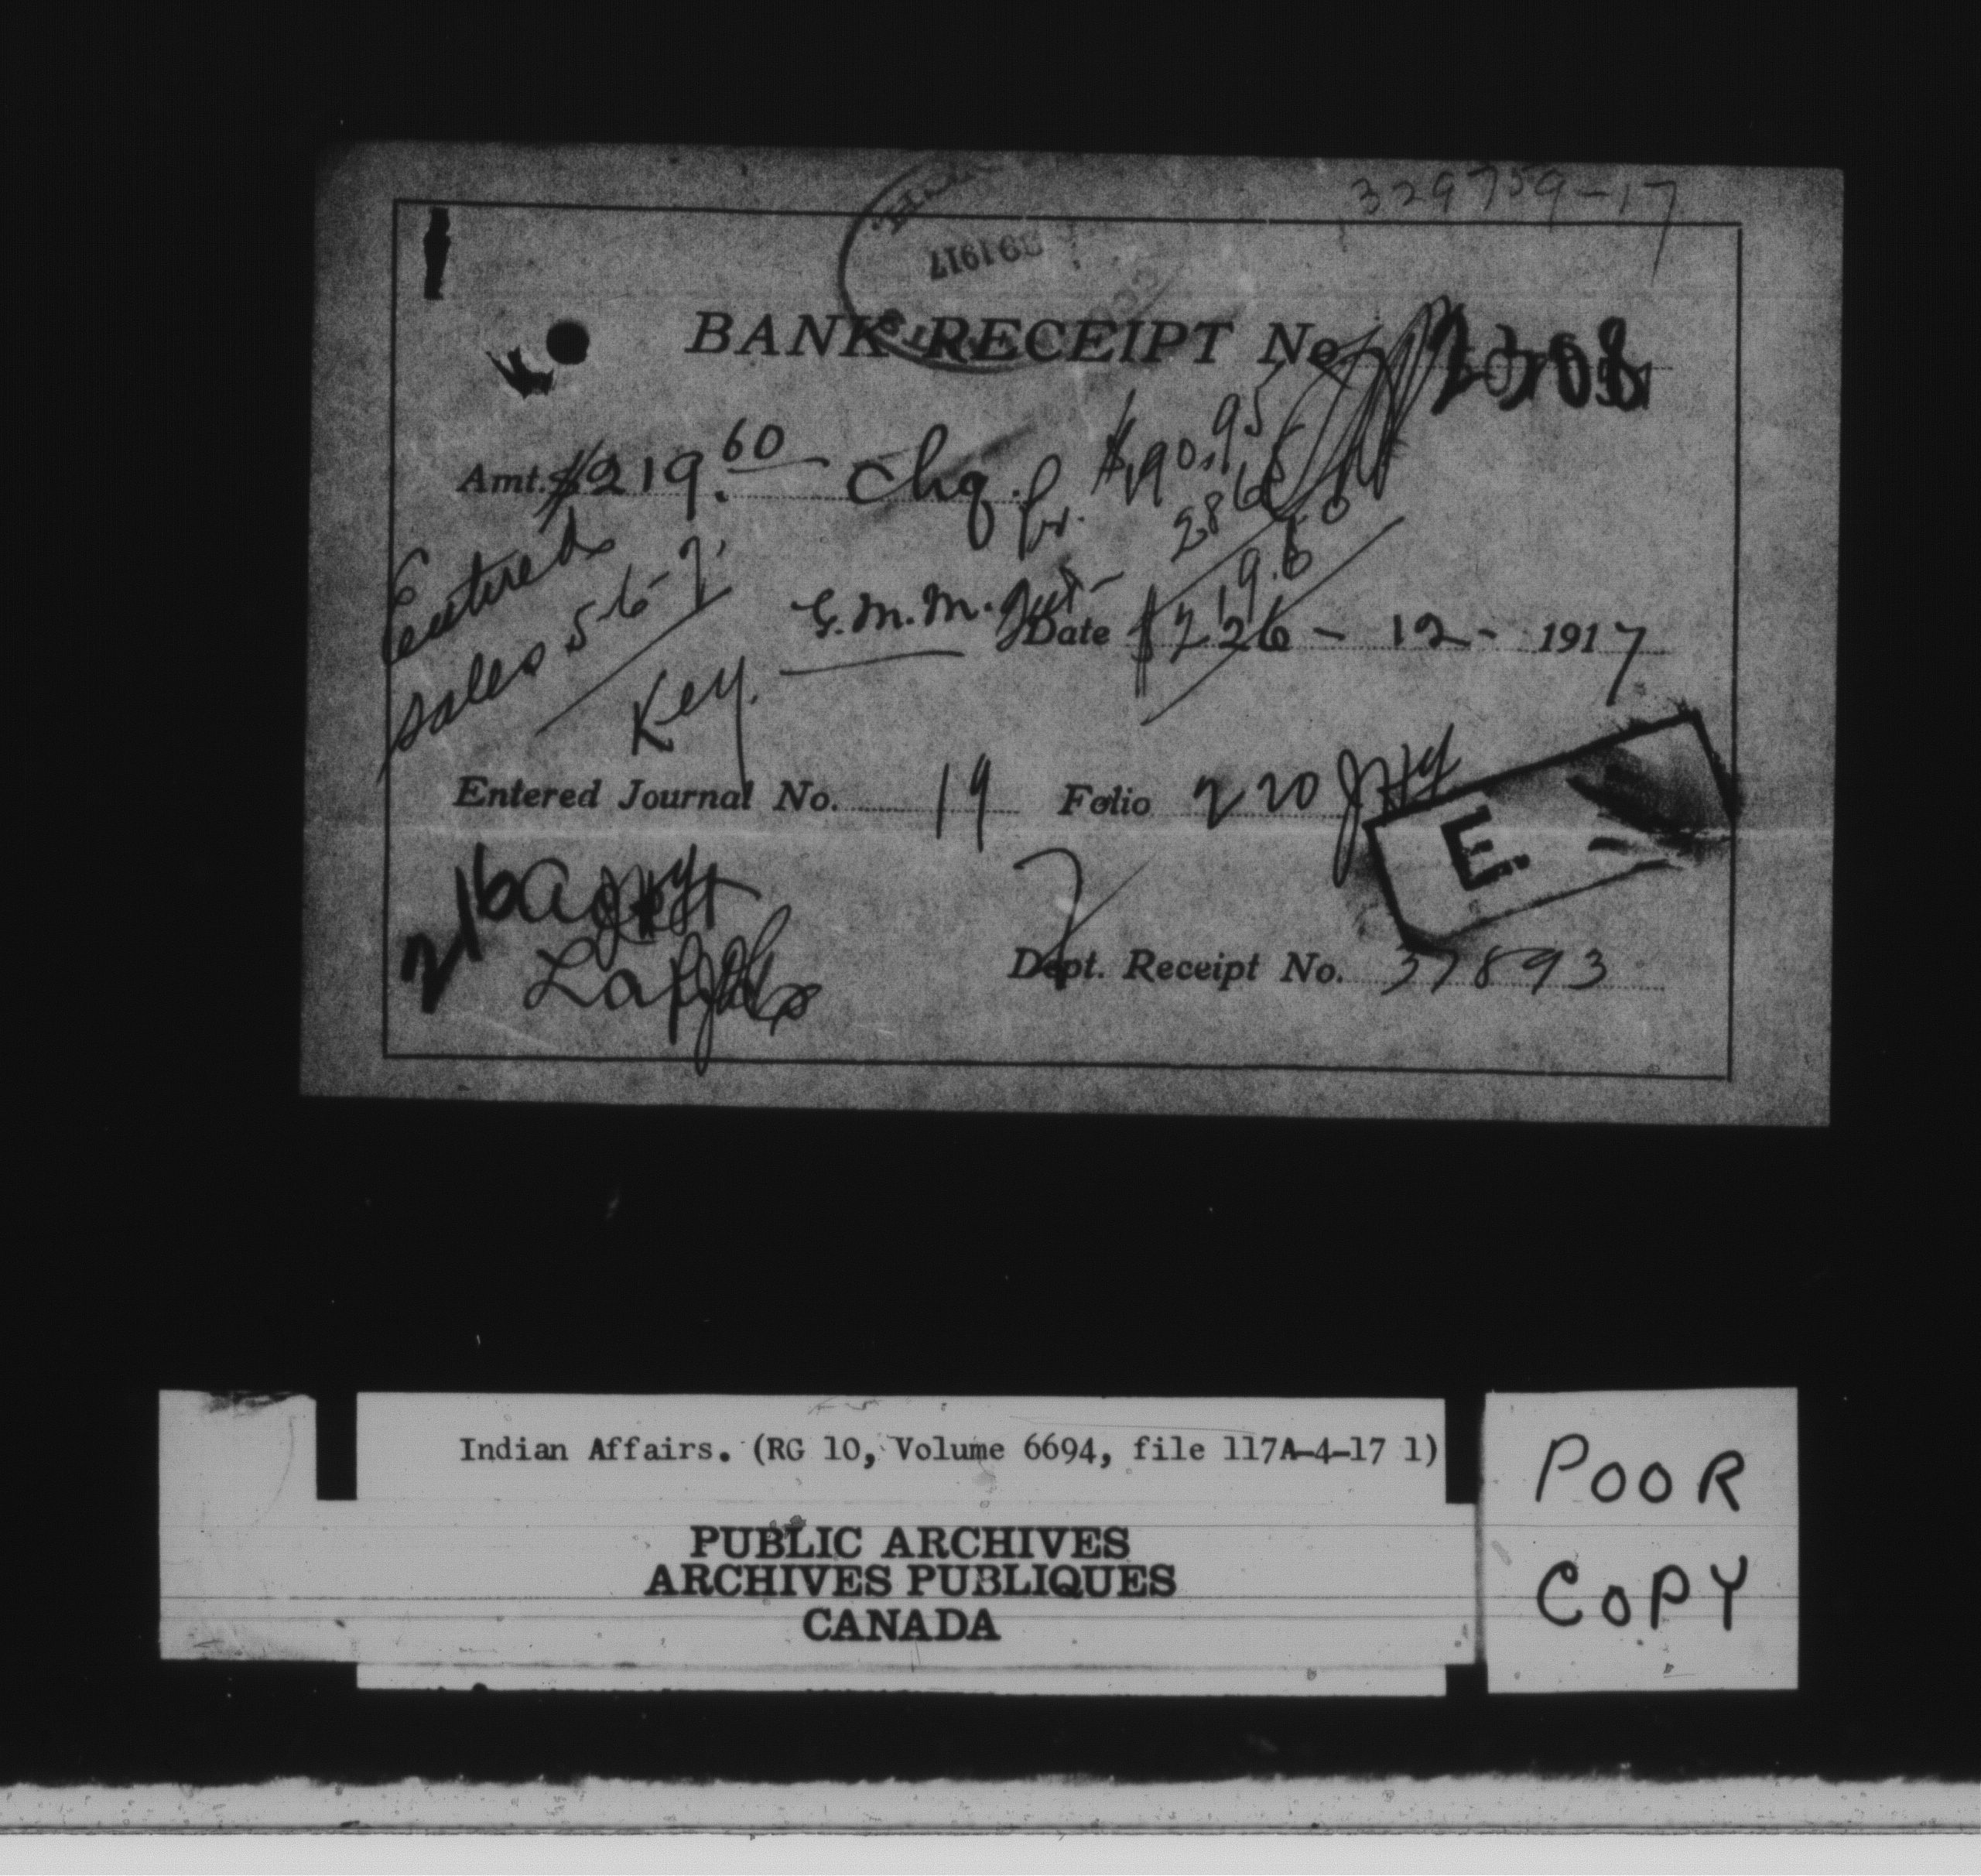 329759-17
1917
BANK RECEIPT No.
Amt. $219.60 Chq. fr. $190.95
28 65
$219.60
Entered
sales 5-6-7.
G.M.M. Int-
Date 26 - 12 - 1917
Key.
Entered Journal No. 19 Folio 220
E.
Dept. Receipt No. 37893
Indian Affairs. (RG 10, Volume 6694, file 117A-4-17 1)
PUBLIC ARCHIVES
ARCHIVES PUBLIQUES
CANADA
POOR
COPY